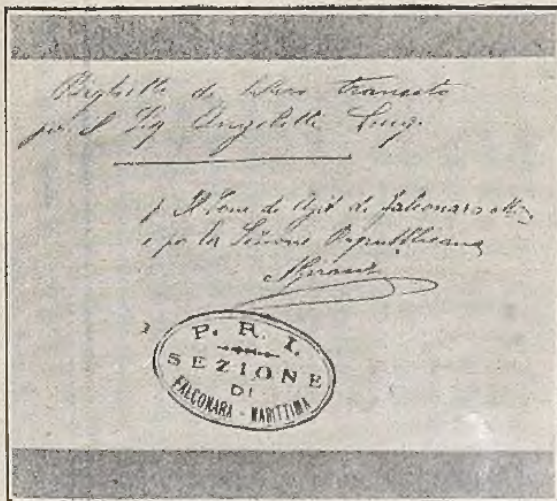 Biglietto di libero transito
per il Sig Angeletti Luigi
p. Il Com. di Agit. di Falconara M.
e per la Sezione Repubblicana
P. R. I.
SEZIONE
DI
FALCONARA - MARITTIMA